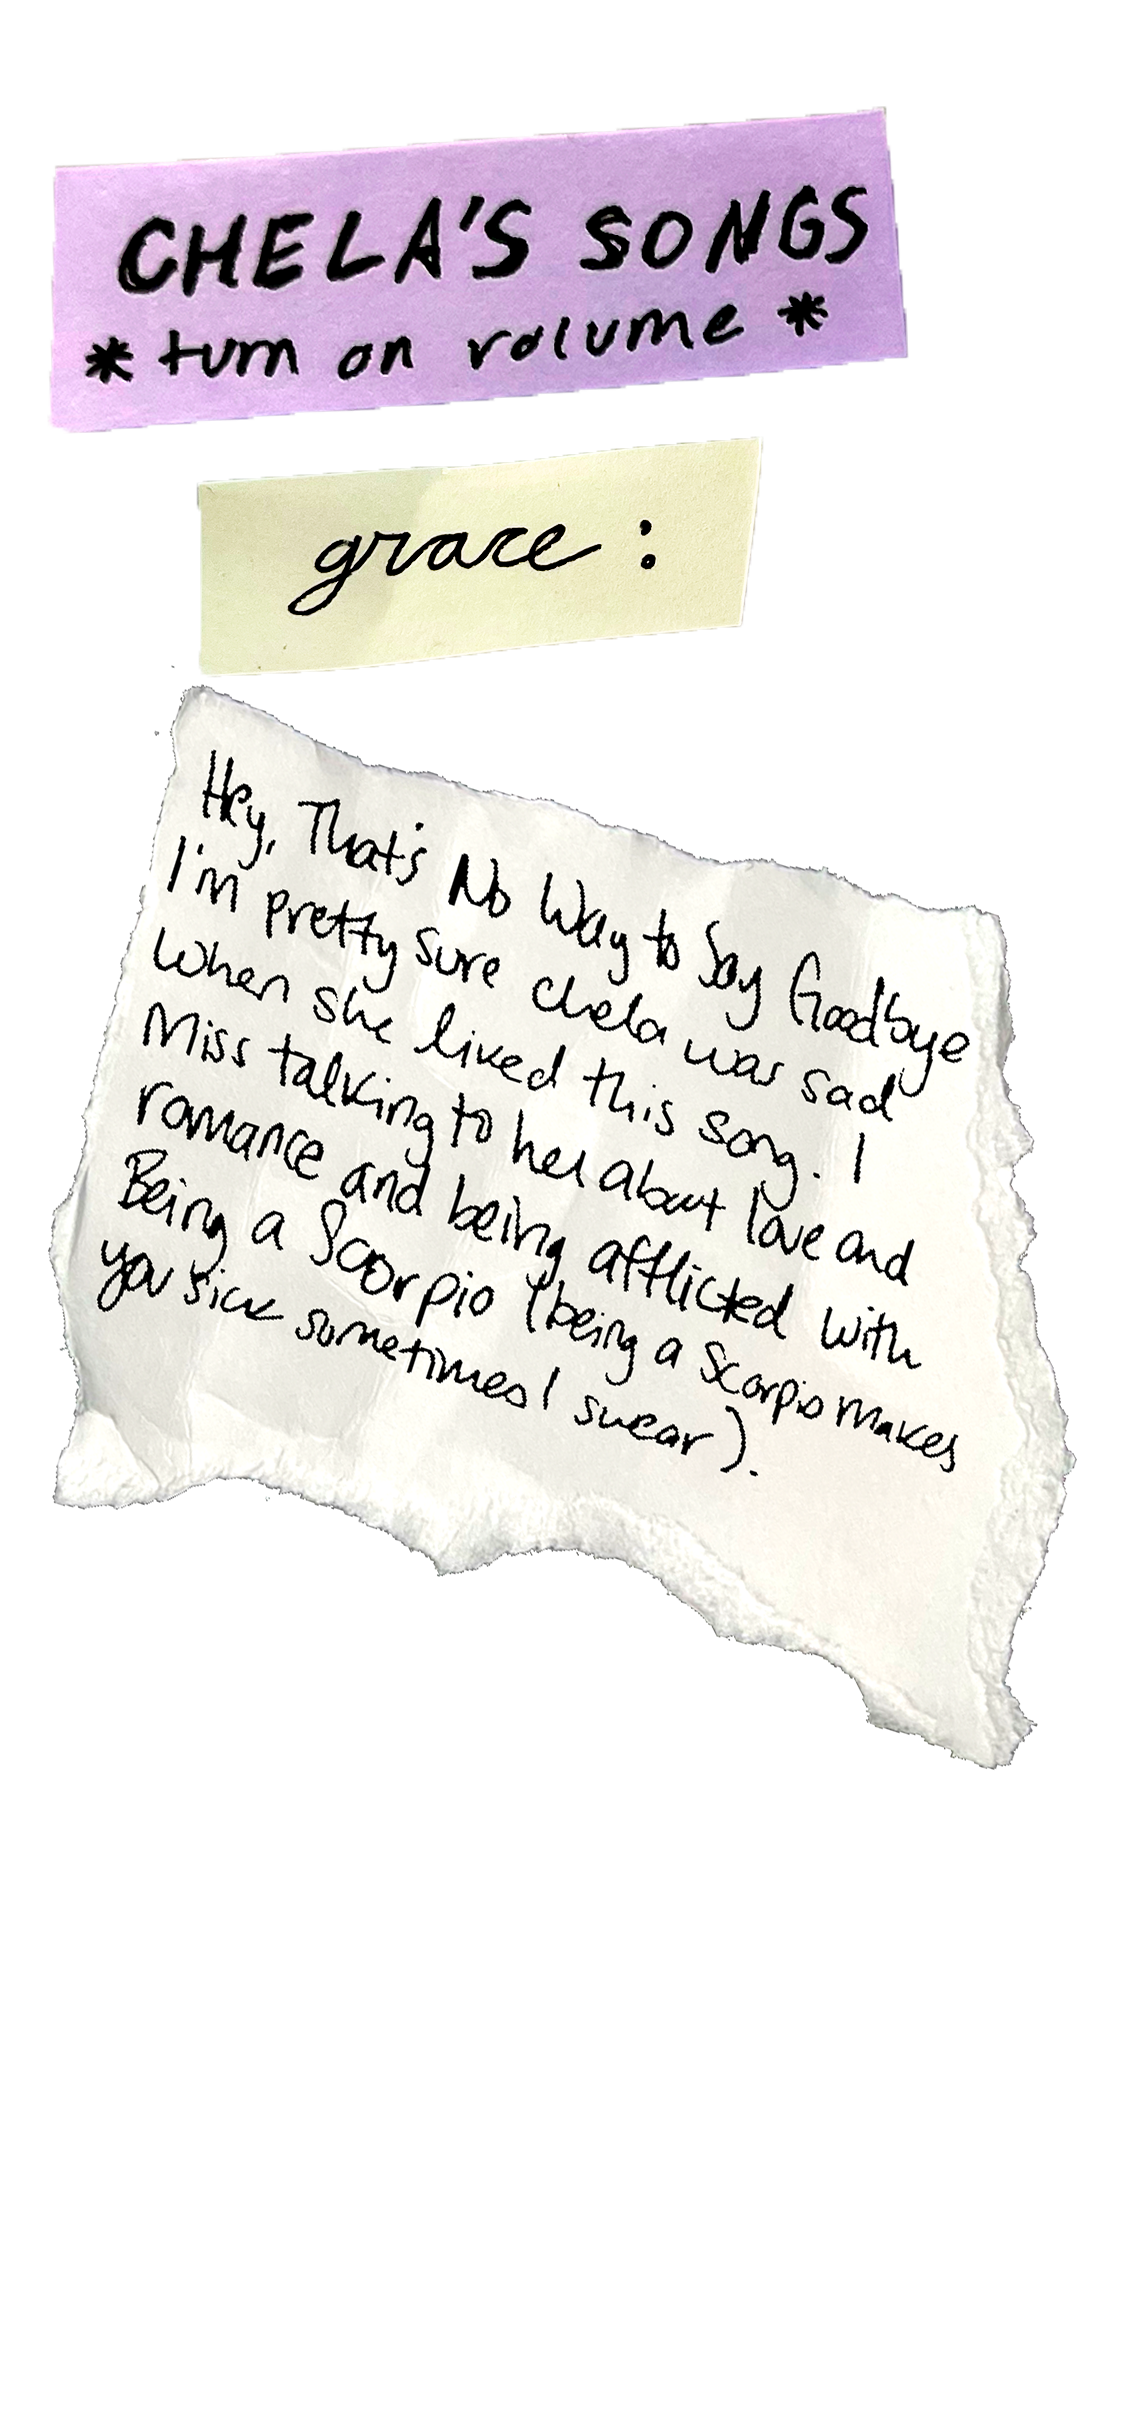 CHELA'S SONGS
* turn on volume *
grace :
Hey, That's No Way to Say Goodbye
I'm pretty sure chela was sad
when she liked this song. I
Miss talking to her about love and
romance and being afflicted with
Being a Scorpio (being a Scorpio makes
you sick sometimes I swear).